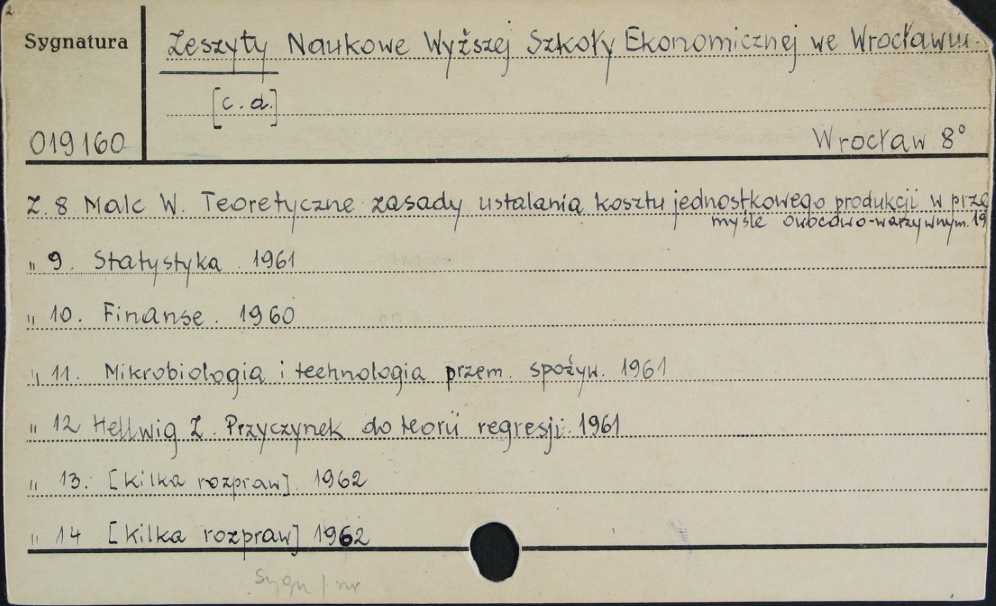 Sygnatura
Zeszyty Naukowe Wyższej Szkoły Ekonomicznej we Wrocławiu.
[c.d.]
019160
Wrocław 8°
Z. 8 Malc W. Teoretyczne zasady ustalania kosztu jednostkowego produkcji w prze
myśle owocowo-warzywnym. 19
" 9. Statystyka. 1961
" 10. Finanse. 1960
" 11. Mikrobiologia i technologia przem. spożyw. 1961
" 12 Hellwig Z. Przyczynek do teorii regresji. 1961
" 13. [kilka rozpraw]. 1962
" 14 [kilka rozpraw] 1962
Sygn / nr